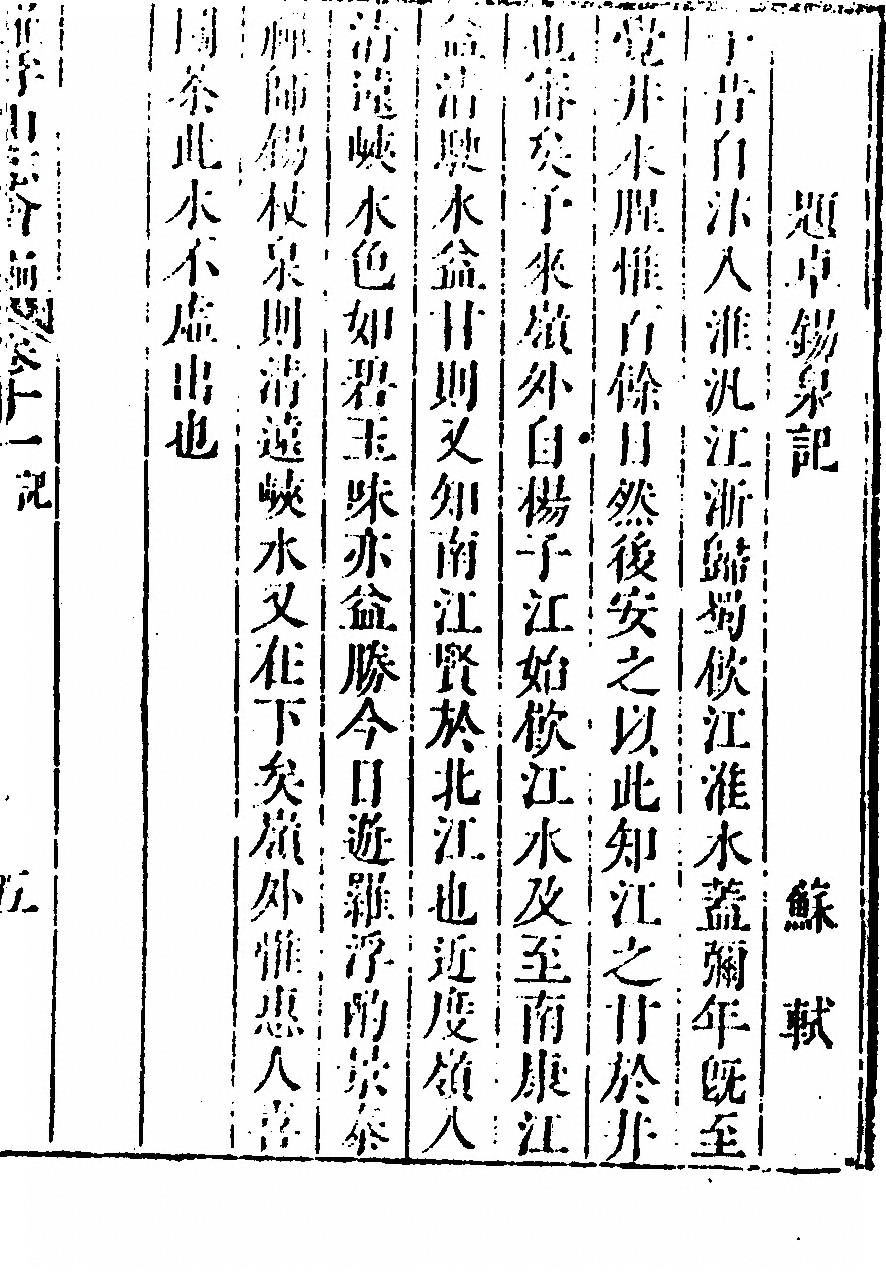 題卓錫泉記 蘇軾
予昔自汴入淮汎江泝歸蜀飲江淮水蓋彌年既至
覺井水腥惟百餘日然後安之以此知江之甘於井
也審矣予來嶺外自楊子江始飲江水及至南康江
益清駛水益甘則又知南江賢於北江也近度嶺入
清遠峽水色如碧玉味亦益勝今日遊羅浮酌景泰
禪師錫杖泉則清遠峽水又在下矣嶺外惟惠人喜
鬬茶此水不虛出也
羅浮山志會編 卷十一 記 五